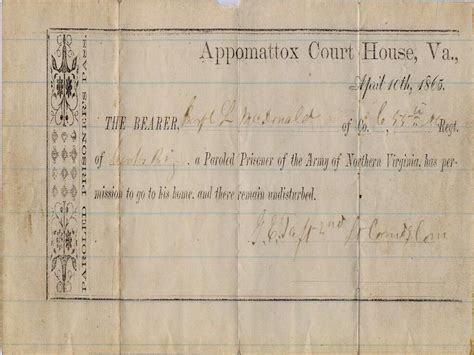 PAROLED PRISONER'S PASS.
Appomattox Court House, Va.,
April 10th, 1865.
THE BEARER, L McDonald of Co. C, 55th Regt.
of , a Paroled Prisoner of the Army of Northern Virginia, has per-
mission to go to his home, and there remain undisturbed.